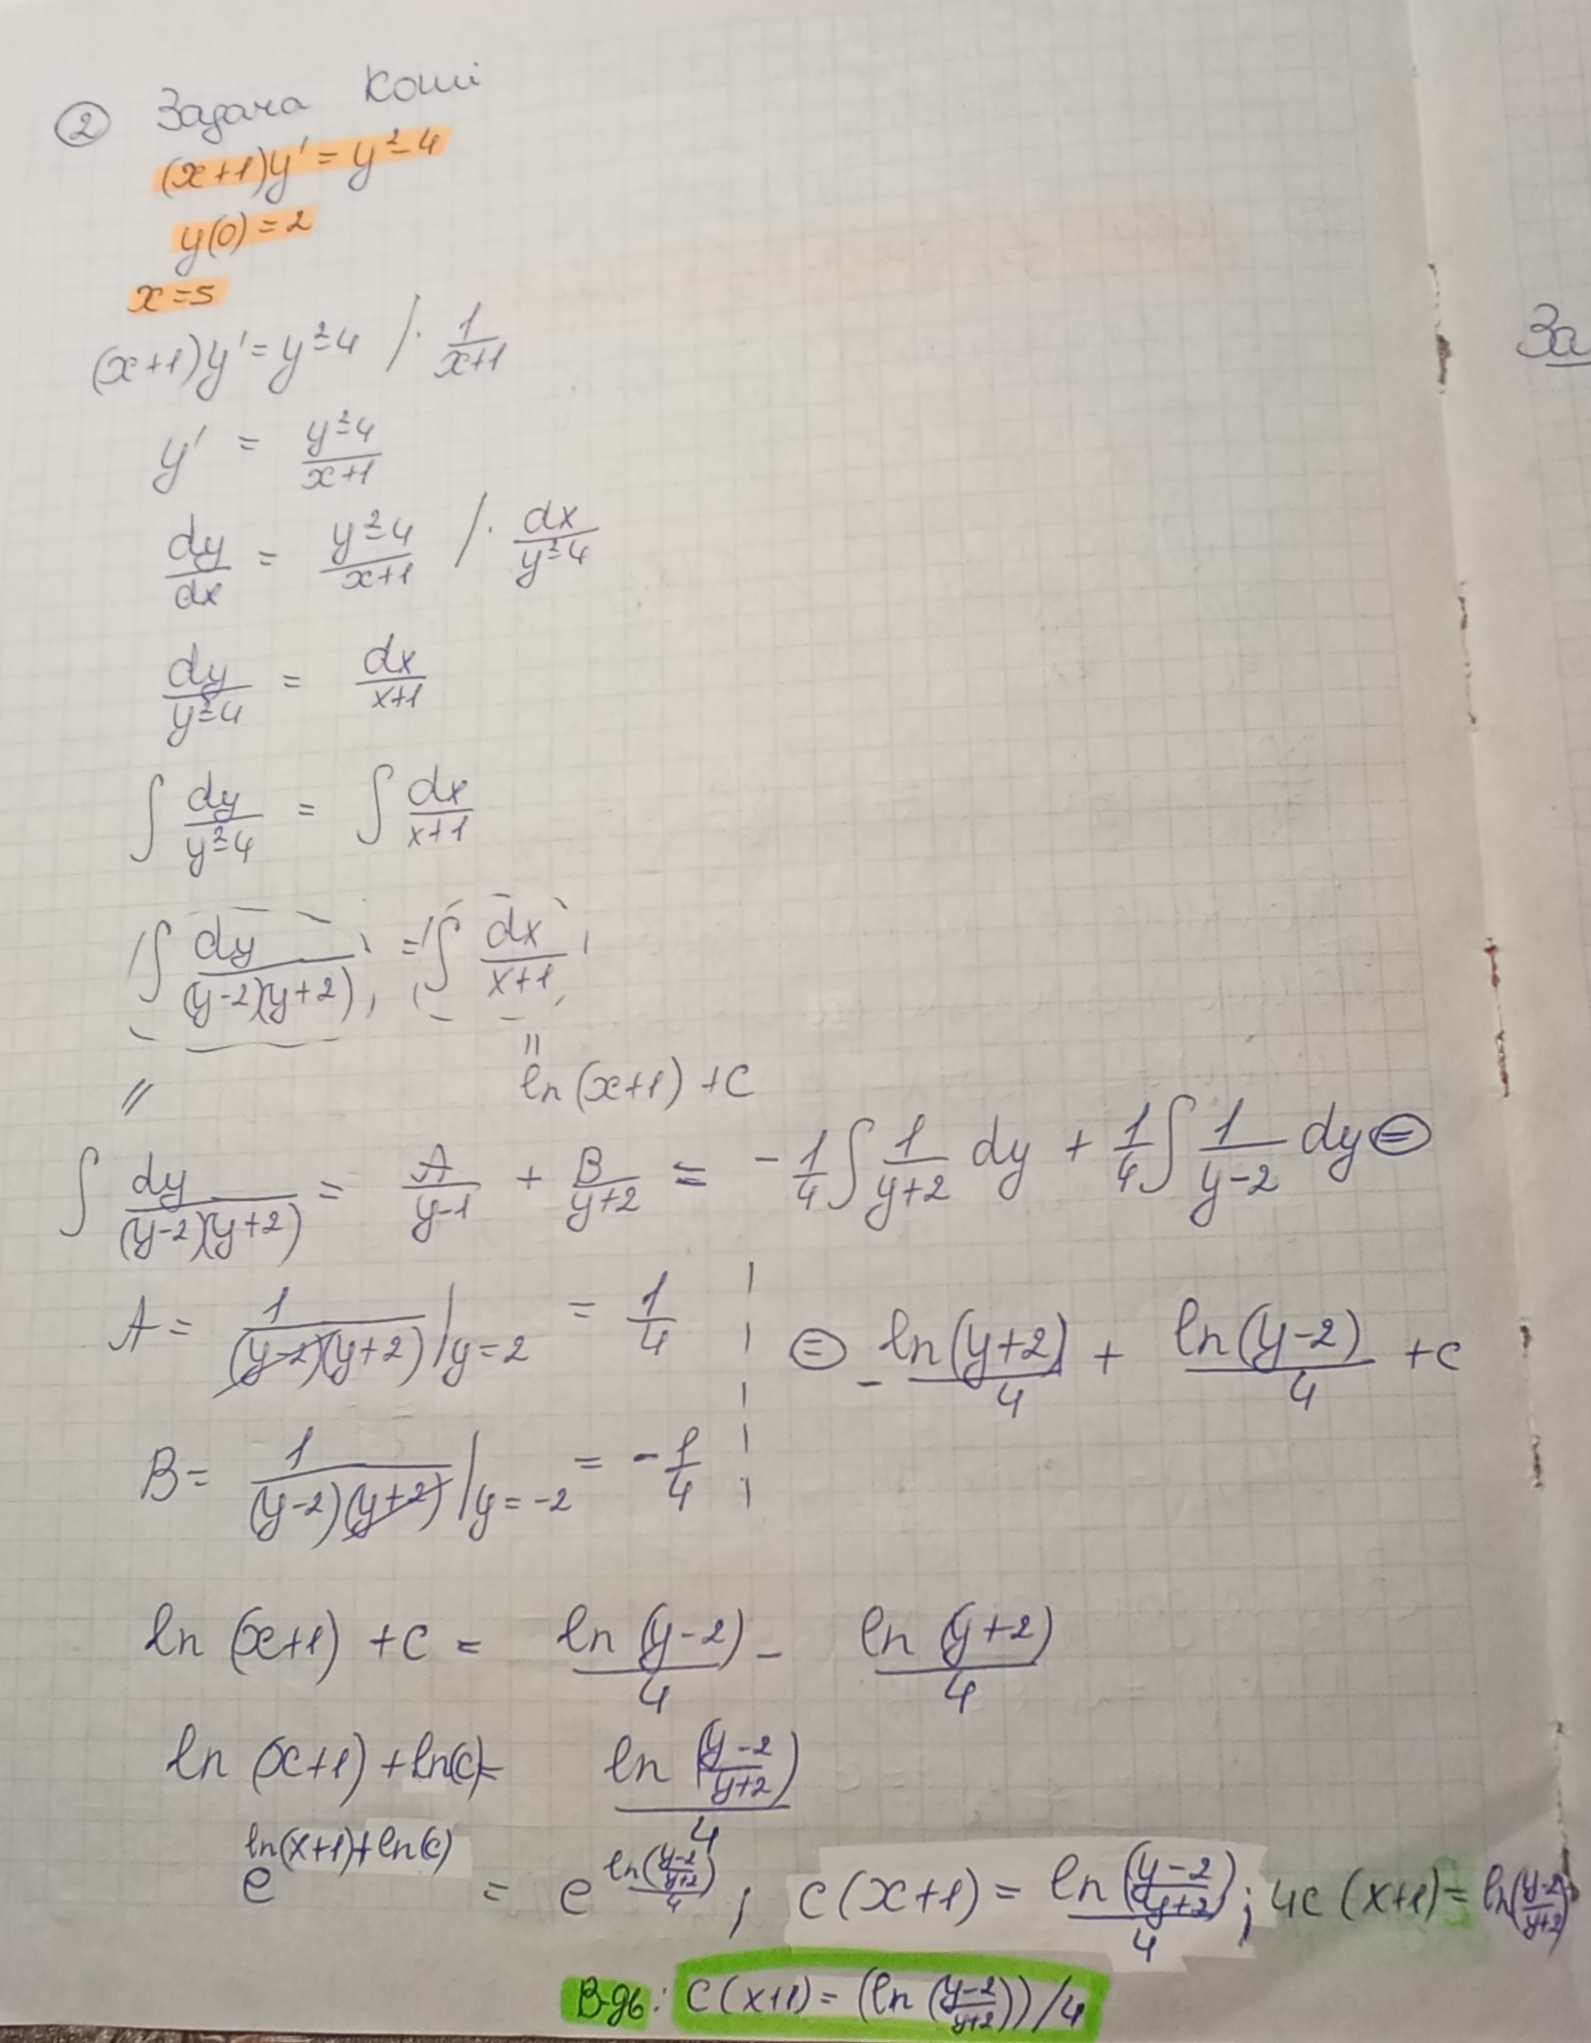 ② Задача Коши
(x+1)y' = y²-4
y(0) = 2
x = 5
(x+1)y' = y²-4 / · 1/(x+1)
y' = (y²-4)/(x+1)
dy/dx = (y²-4)/(x+1) / · dx/(y²-4)
dy/(y²-4) = dx/(x+1)
∫ dy/(y²-4) = ∫ dx/(x+1)
∫ dy/((y-2)(y+2)) = ∫ dx/(x+1)
За
= ln(x+1) + C
=
∫ dy/((y-2)(y+2)) = A/(y-1) + B/(y+2) = -1/4 ∫ 1/(y+2) dy + 1/4 ∫ 1/(y-2) dy ⊜
A = 1/((y-2)(y+2)) |y=2 = 1/4
⊜ -ln(y+2)/4 + ln(y-2)/4 + C
B = 1/((y-2)(y+2)) |y=-2 = -1/4
ln(x+1) + C = ln(y-2)/4 - ln(y+2)/4
ln(x+1) + ln(C) = ln((y-2)/(y+2))/4
e^(ln(x+1)+ln(C)) = e^(ln((y-2)/(y+2))/4) ; C(x+1) = ln((y-2)/(y+2))/4 ; 4C(x+1) = ln((y-2)/(y+2))
В-дь: C(x+1) = (ln((y-2)/(y+2)))/4